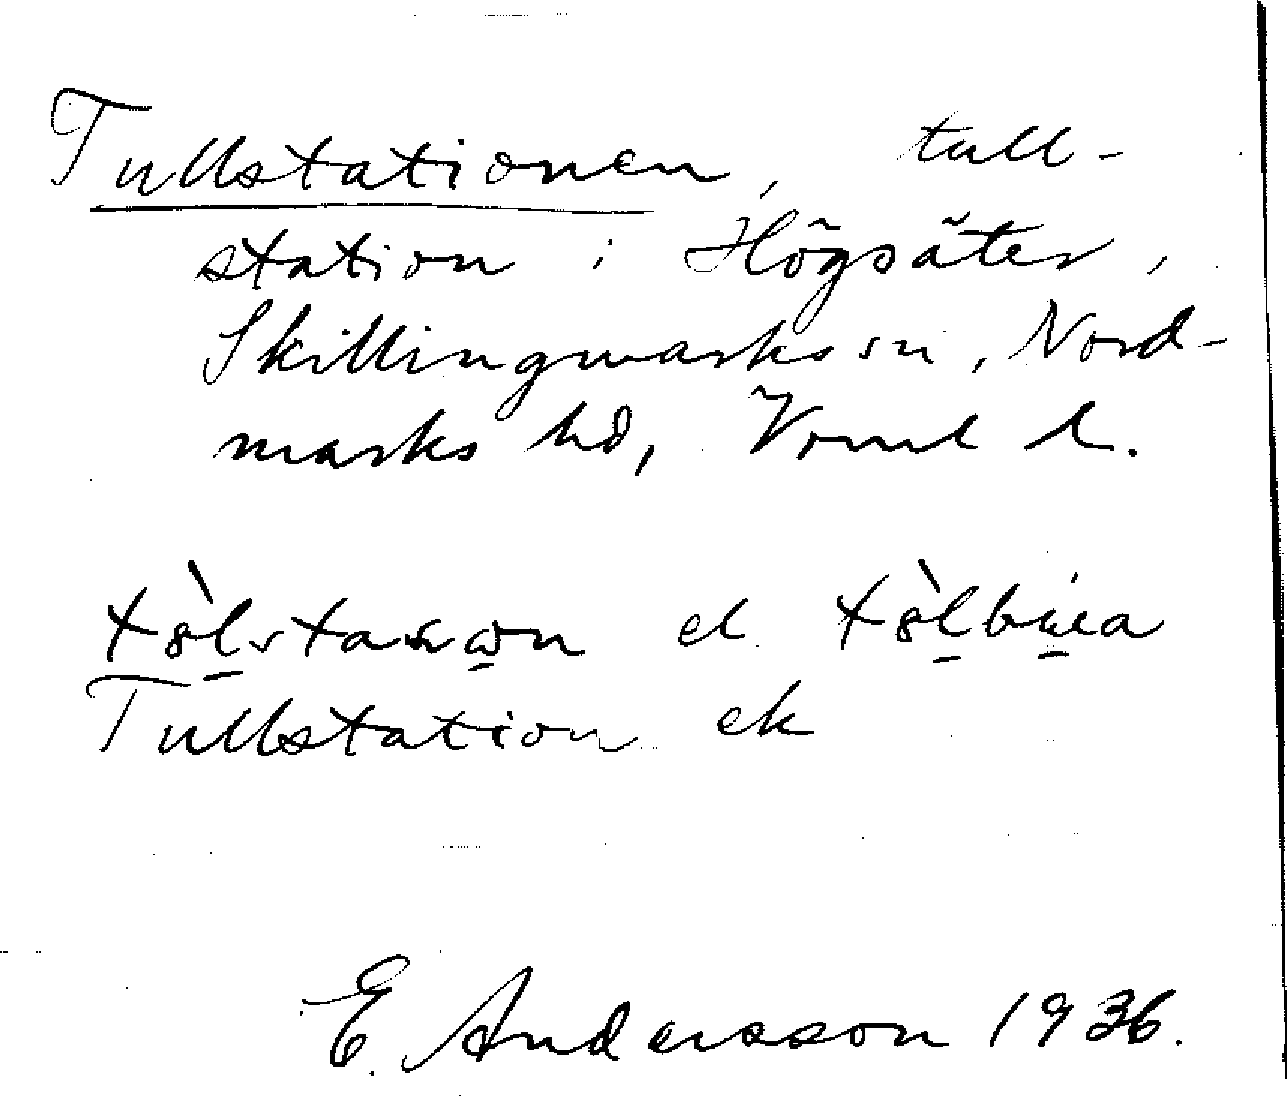 Tullstationen, tull-
station i Högsäter,
Skillingmarks sn, Nord-
marks hd, Värml l.
el.
Tullstation ek
E. Andersson 1936.